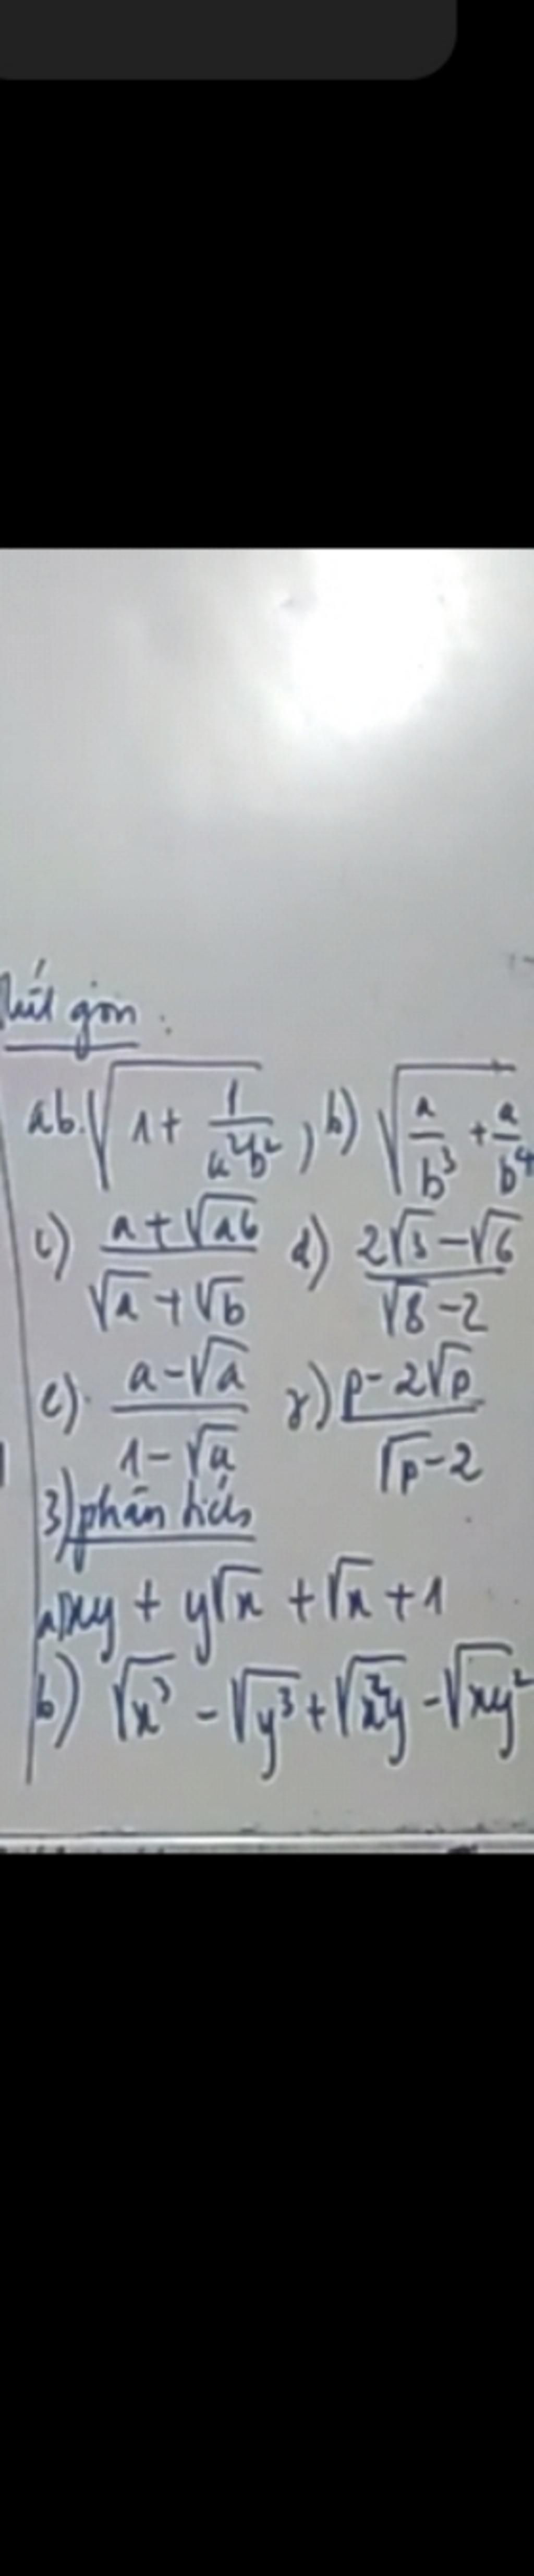 Rút gọn :
ab.√(1 + 1/(a²b²)) , b) √(a/b³ + a/b⁴)
c) (a + √ab)/(√a + √b) d) (2√3 - √6)/(√8 - 2)
e) (a - √a)/(1 - √a) γ) (p - 2√p)/(√p - 2)
3) phân tích
a) xy + y√x + √x + 1
b) √x³ - √y³ + √x²y - √xy²